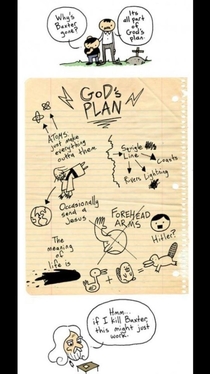 Why's
Baxter
gone?
Its
all part
of
God's
plan
GOD'S
PLAN
ATOMS:
just make
everything
outta them
Squigle
Line
Coasts
Rivers
Lighting
Occasionally
send a
Jesus
FOREHEAD
ARMS
Hitler?
The
meaning
of
life is
+
=
Hmm...
if I kill Baxter,
this might just
work.